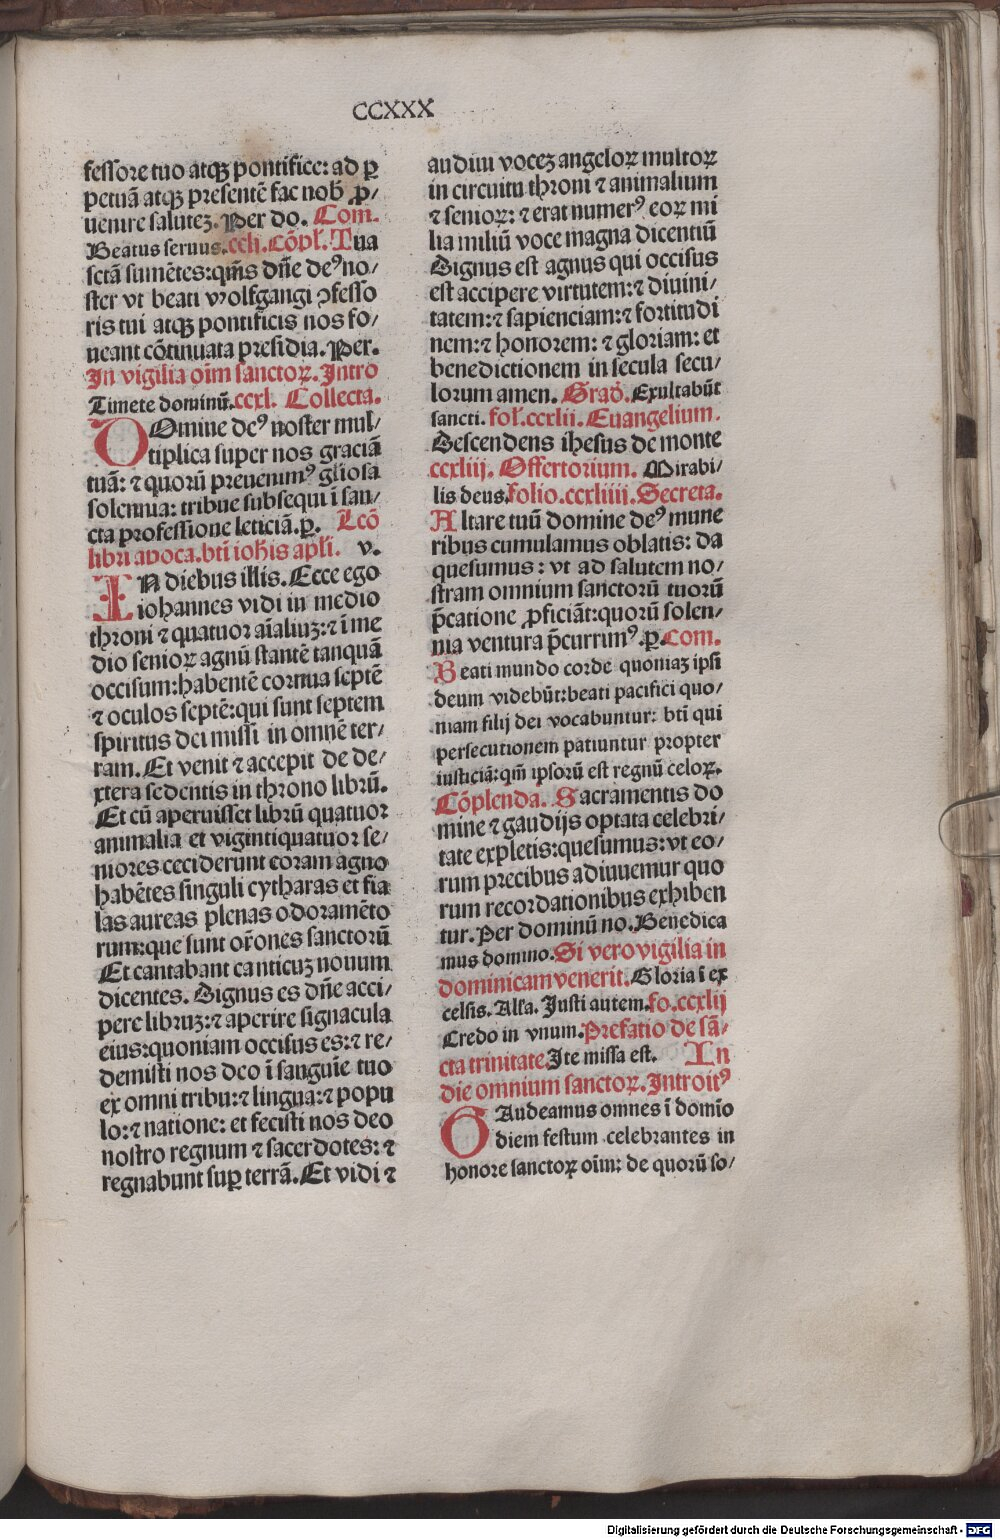 CCXXX
fessore tuo atqꝫ pontifice: ad ꝑ
petuā atqꝫ presentē fac nob̄ ꝓ/
uenire salutez. Per do. Com.
Beatus seruus. ccli. Cōpl̄. Tua
sctā sumētes: qm̄s dn̄e deꝰ no/
ster vt beati wolfgangi ꝯfesso
ris tui atqꝫ pontificis nos fo/
ueant cōtinuata presidia. Per.
In vigilia oīm sanctoꝝ. Intro
Timete dominū. ccxl. Collecta.
DOmine deꝰ noster mul/
tiplica super nos graciā
tuā: ⁊ quorū preuenimꝰ gl̄iosa
solennia: tribue subsequi ī san/
cta professione leticiā. p. Lcō
libri apoca. btī ioh̄is apl̄i. v.
IN diebus illis. Ecce ego
iohannes vidi in medio
throni ⁊ quatuor aīaliuꝫ: ⁊ ī me
dio senioꝝ agnū stantē tanquā
occisum: habentē cornua septē
⁊ oculos septē: qui sunt septem
spiritus dei missi in omnē ter/
ram. Et venit ⁊ accepit de de/
xtera sedentis in throno librū.
Et cū aperuisset librū quatuor
animalia et vigintiquatuor se/
niores ceciderunt coram agno
habētes singuli cytharas et fia
las aureas plenas odoramēto
rum: que sunt or̄ones sanctorū
Et cantabant canticuꝫ nouum
dicentes. Dignus es dn̄e acci/
pere libruꝫ: ⁊ aperire signacula
eius: quoniam occisus es: ⁊ re/
demisti nos deo ī sanguīe tuo
ex omni tribu: ⁊ lingua: ⁊ popu
lo: ⁊ natione: et fecisti nos deo
nostro regnum ⁊ sacerdotes: ⁊
regnabunt suꝑ terrā. Et vidi ⁊
audiui vocez angeloꝝ multoꝝ
in circuitu throni ⁊ animalium
⁊ senioꝝ: ⁊ erat numerꝰ eoꝝ mi
lia miliū voce magna dicentiū
Dignus est agnus qui occisus
est accipere virtutem: ⁊ diuini/
tatem: ⁊ sapienciam: ⁊ fortitudi
nem: ⁊ honorem: ⁊ gloriam: et
benedictionem in secula secu/
lorum amen. Grad̄. Exultabūt
sancti. fol̄. ccxlii. Euangelium.
Descendens ihesus de monte
ccxliij. Offertorium. Mirabi/
lis deus. folio. ccxliiii. Secreta.
Altare tuū domine deꝰ mune
ribus cumulamus oblatis: da
quesumus: vt ad salutem no/
stram omnium sanctorū tuorū
p̄catione ꝓficiāt: quorū solen/
nia ventura p̄currimꝰ. p. Com.
Beati mundo corde quoniaꝫ ipsi
deum videbūt: beati pacifici quo/
niam filij dei vocabuntur: btī qui
persecutionem patiuntur propter
iusticiā: qm̄ ipsorū est regnū celoꝝ.
Cōplenda. Sacramentis do
mine ⁊ gaudijs optata celebri/
tate expletis: quesumus: vt eo/
rum precibus adiuuemur quo
rum recordationibus exhiben
tur. Per dominū no. Benedica
mus domino. Si vero vigilia in
dominicam venerit. Gloria ī ex
celsis. Alla. Iusti autem. fo. ccxlij
Credo in vnum. Prefatio de sā/
cta trinitate Ite missa est. In
die omnium sanctoꝝ. Introitꝰ
GAudeamus omnes ī domīo
diem festum celebrantes in
honore sanctoꝝ oīm: de quorū so/
Digitalisierung gefördert durch die Deutsche Forschungsgemeinschaft - DFG